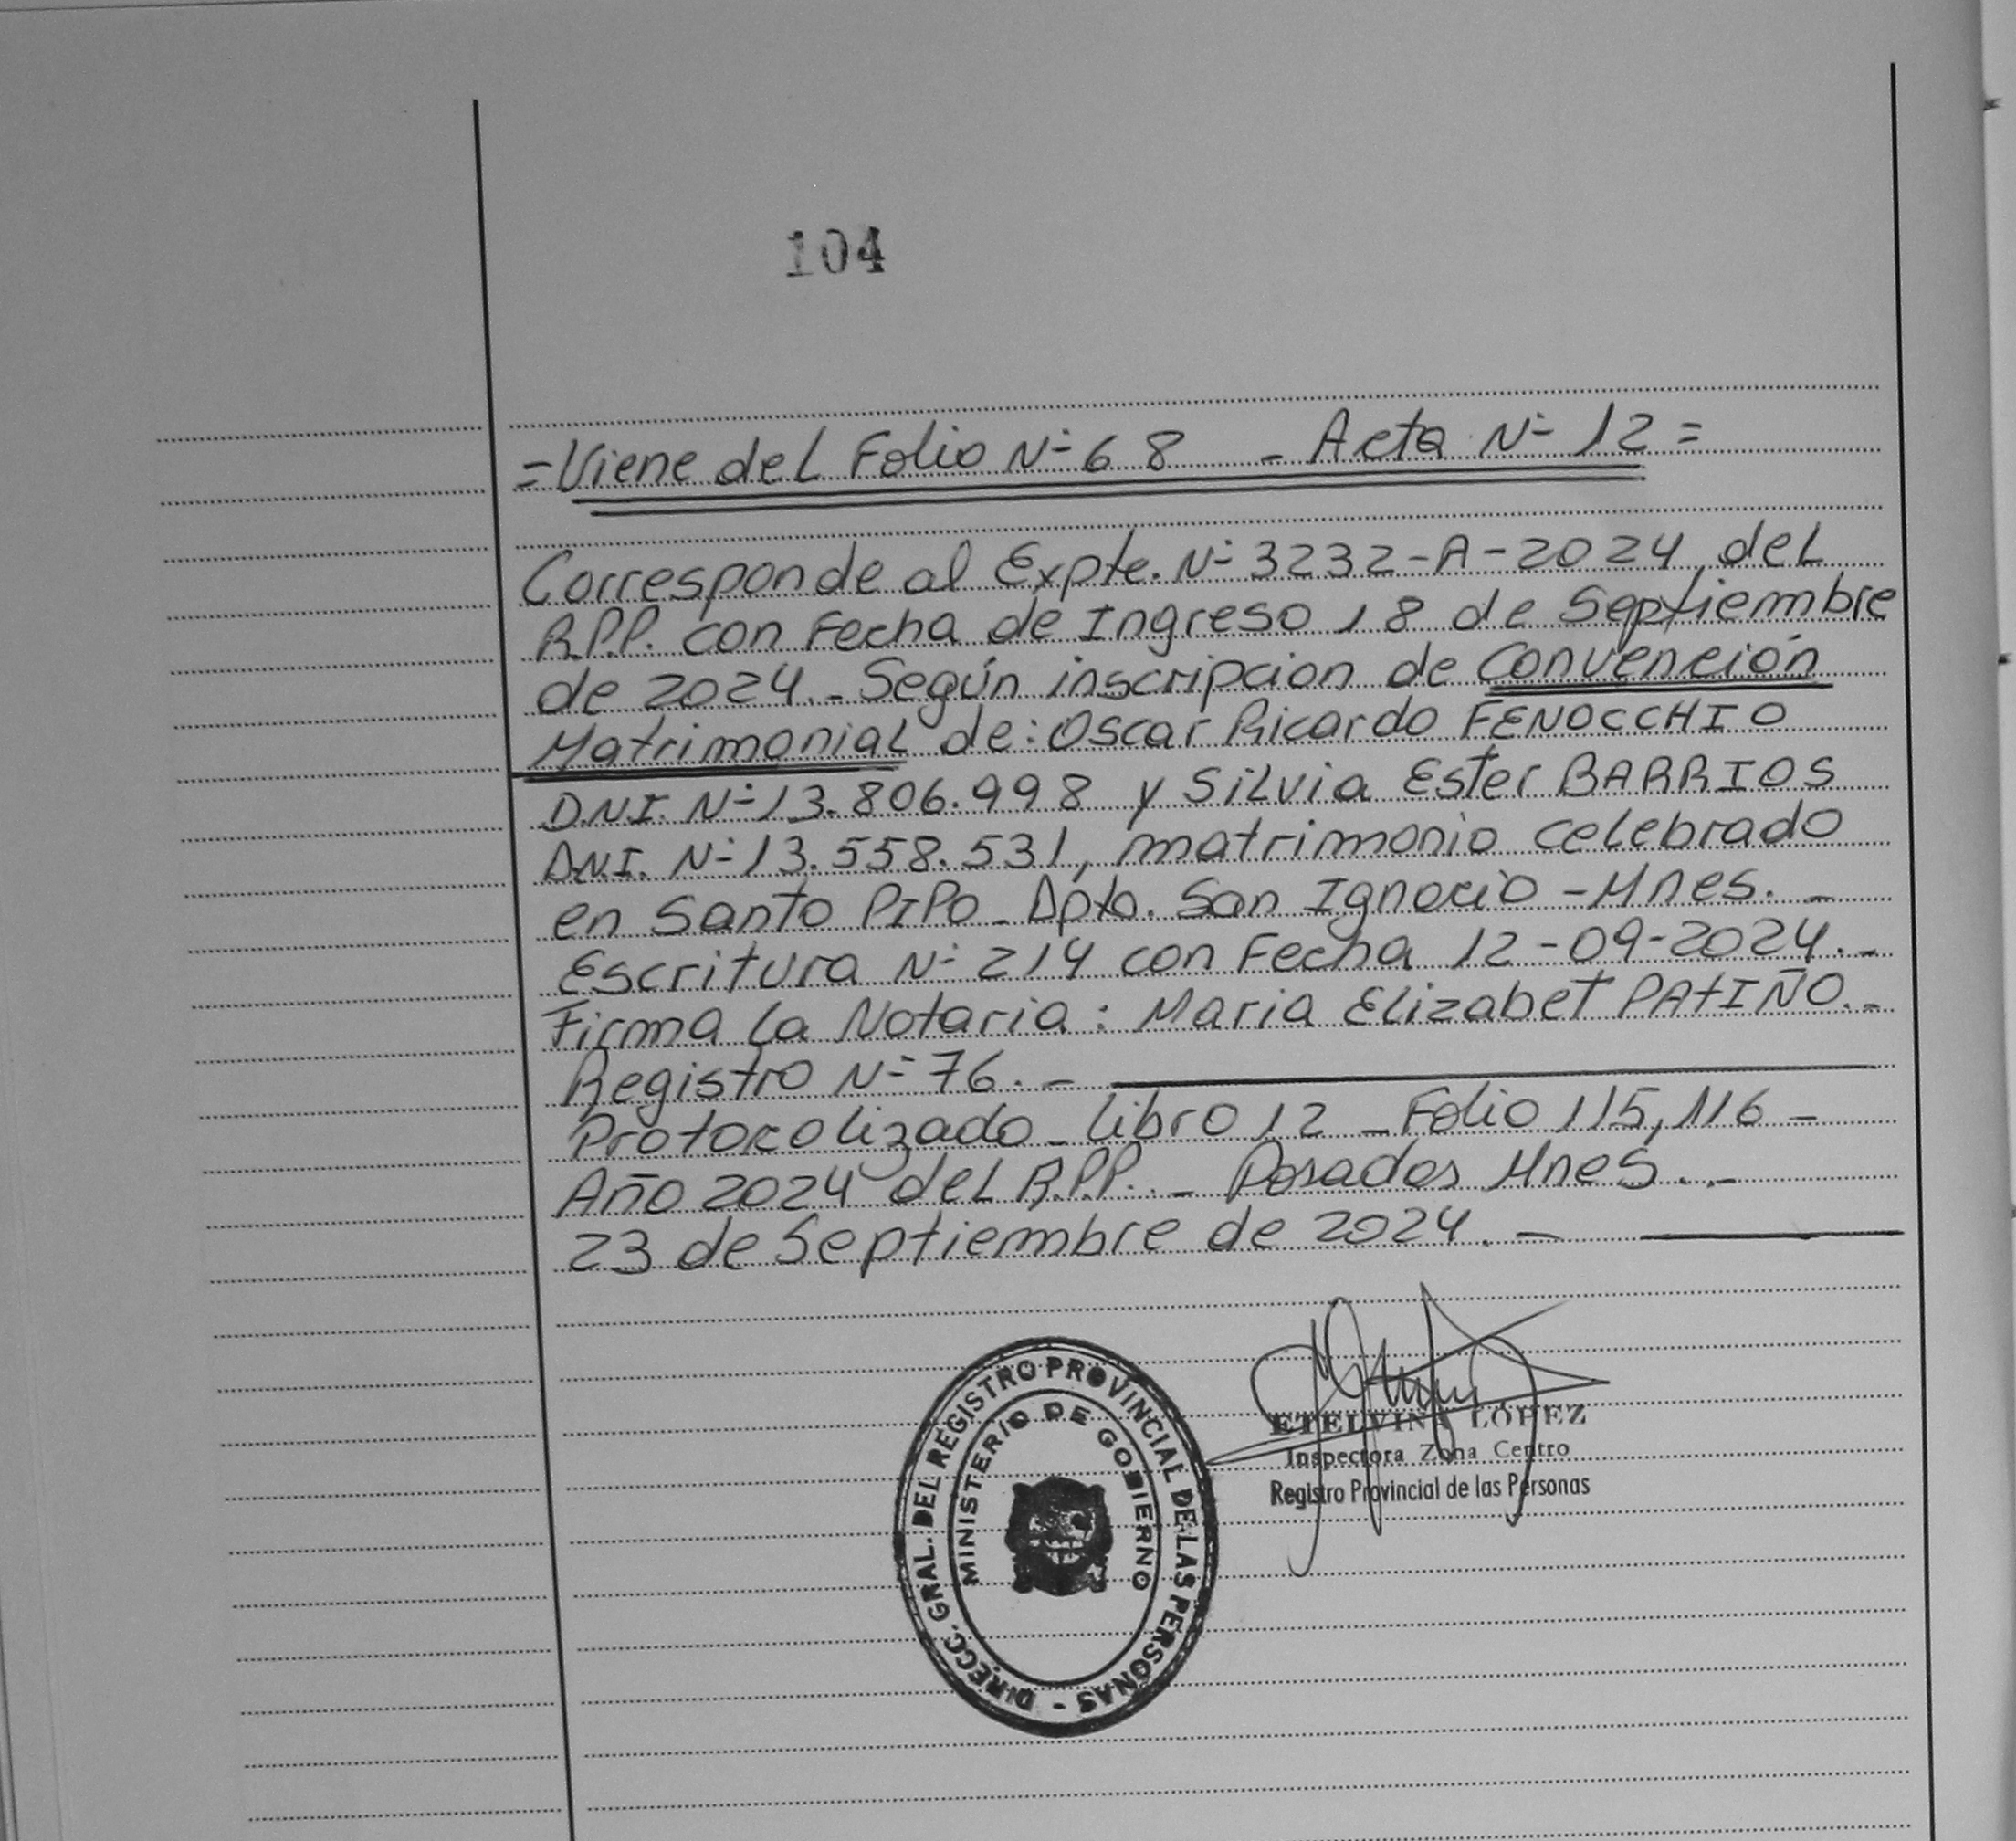 104
=Viene del Folio Nº 68 - Acta Nº 12=
Corresponde al Expte. Nº 3232-A-2024, del
R.P.P. con Fecha de Ingreso 18 de Septiembre
de 2024.- Según inscripcion de Convención
Matrimonial de: Oscar Ricardo FENOCCHIO
D.N.I. Nº 13.806.998 y Silvia Ester BARRIOS
D.N.I. Nº 13.558.531, matrimonio celebrado
en Santo PIPO - Dpto. San Ignacio - Mnes. -
Escritura Nº 214 con Fecha 12-09-2024.-
Firma la Notaria: Maria Elizabet PATIÑO.-
Registro Nº 76.-
Protocolizado - Libro 12 - Folio 115, 116 -
Año 2024 del R.P.P. - Posadas Mnes. -
23 de Septiembre de 2024. -
ETELVINA LÓPEZ
Inspectora Zona Centro
Registro Provincial de las Personas
DIRECC. GRAL. DEL REGISTRO PROVINCIAL DE LAS PERSONAS -
MINISTERIO DE GOBIERNO